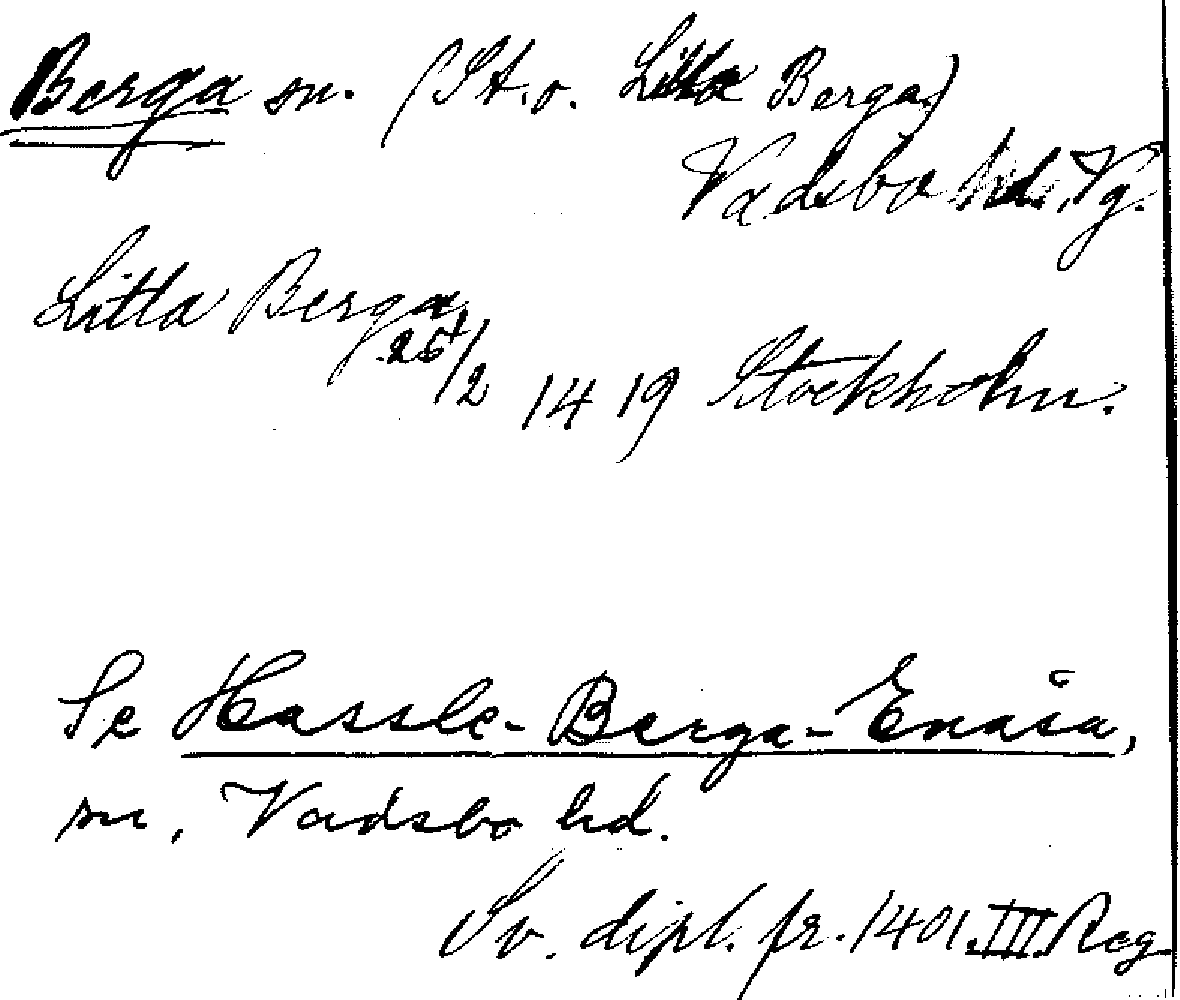 Berga sn. (St. o. Litla Berga)
Vadsbo hd., Vg.
Litla Berga
25/2 1419 Stockholm.
Se Hassle-Berga-Enåsa,
sn, Vadsbo hd.
Sv. dipl. fr. 1401. III. Reg